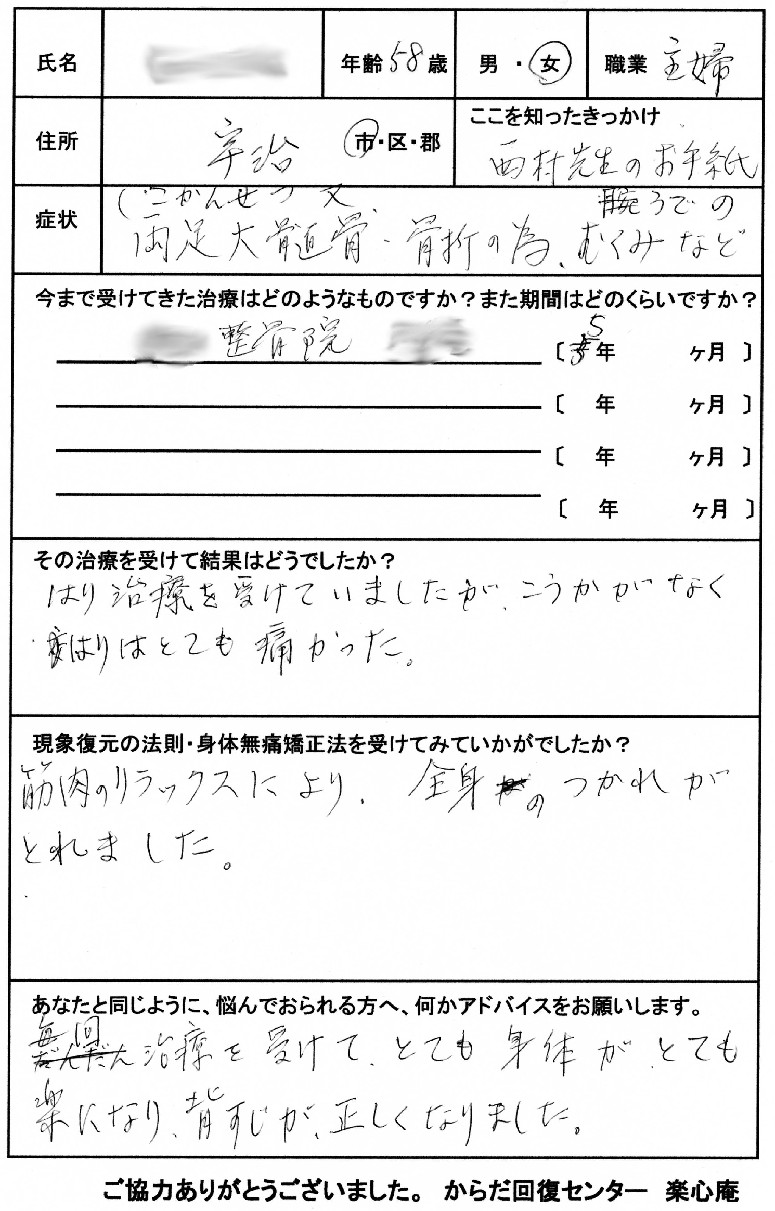 氏名 年齢 58 歳 男・女 職業 主婦
住所 宇治 市・区・郡 ここを知ったきっかけ
西村先生のお手紙
症状 かんせつ 腕うでの
両足大 骨・骨折の為、むくみなど
今まで受けてきた治療はどのようなものですか?また期間はどのくらいですか?
整骨院 〔 5年 ヶ月 〕
〔 年 ヶ月 〕
〔 年 ヶ月 〕
〔 年 ヶ月 〕
その治療を受けて結果はどうでしたか?
はり治療を受けていましたが、こうかがなく
はりはとても痛かった。
現象復元の法則・身体無痛矯正法を受けてみていかがでしたか?
筋肉のリラックスにより、全身のつかれが
とれました。
あなたと同じように、悩んでおられる方へ、何かアドバイスをお願いします。
毎回治療を受けて、とても身体がとても
楽になり、背すじが、正しくなりました。
ご協力ありがとうございました。 からだ回復センター 楽心庵